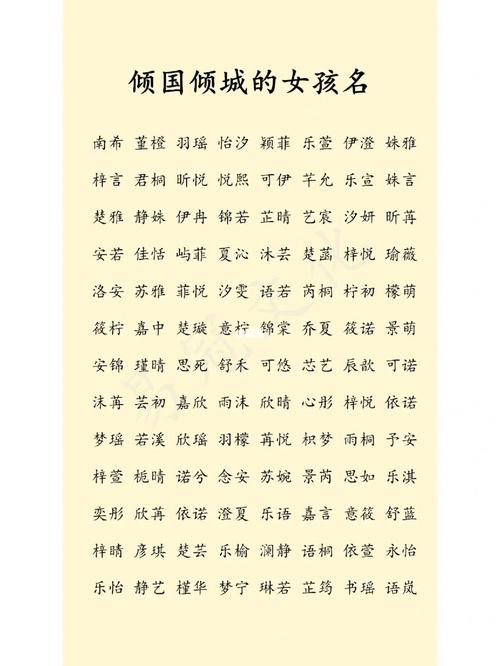 倾国倾城的女孩名
南希 董橙 羽瑶 怡汐 颖菲 乐萱 伊澄 姝雅
梓言 君桐 昕悦 悦熙 可伊 芊允 乐宣 姝言
楚雅 静姝 伊冉 锦若 芷晴 艺宸 汐妍 昕苒
安若 佳恬 屿菲 夏沁 沐芸 楚菡 梓悦 瑜薇
洛安 苏雅 菲悦 汐雯 语若 芮桐 柠初 檬萌
筱柠 嘉中 楚璇 意柠 锦棠 乔夏 筱诺 景萌
安锦 瑾晴 思死 舒禾 可悠 芯艺 辰歆 可诺
沫苒 芸初 嘉欣 雨沫 欣晴 心彤 梓悦 依诺
梦瑶 若溪 欣瑶 羽檬 苒悦 枳梦 雨桐 予安
梓萱 栀晴 诺兮 念安 苏婉 景芮 思如 乐淇
奕彤 欣苒 依诺 澄夏 乐语 嘉言 意筱 舒蓝
梓晴 彦琪 楚芸 乐榆 澜静 语桐 依萱 永怡
乐怡 静艺 槿华 梦宁 琳若 芷筠 书瑶 语岚